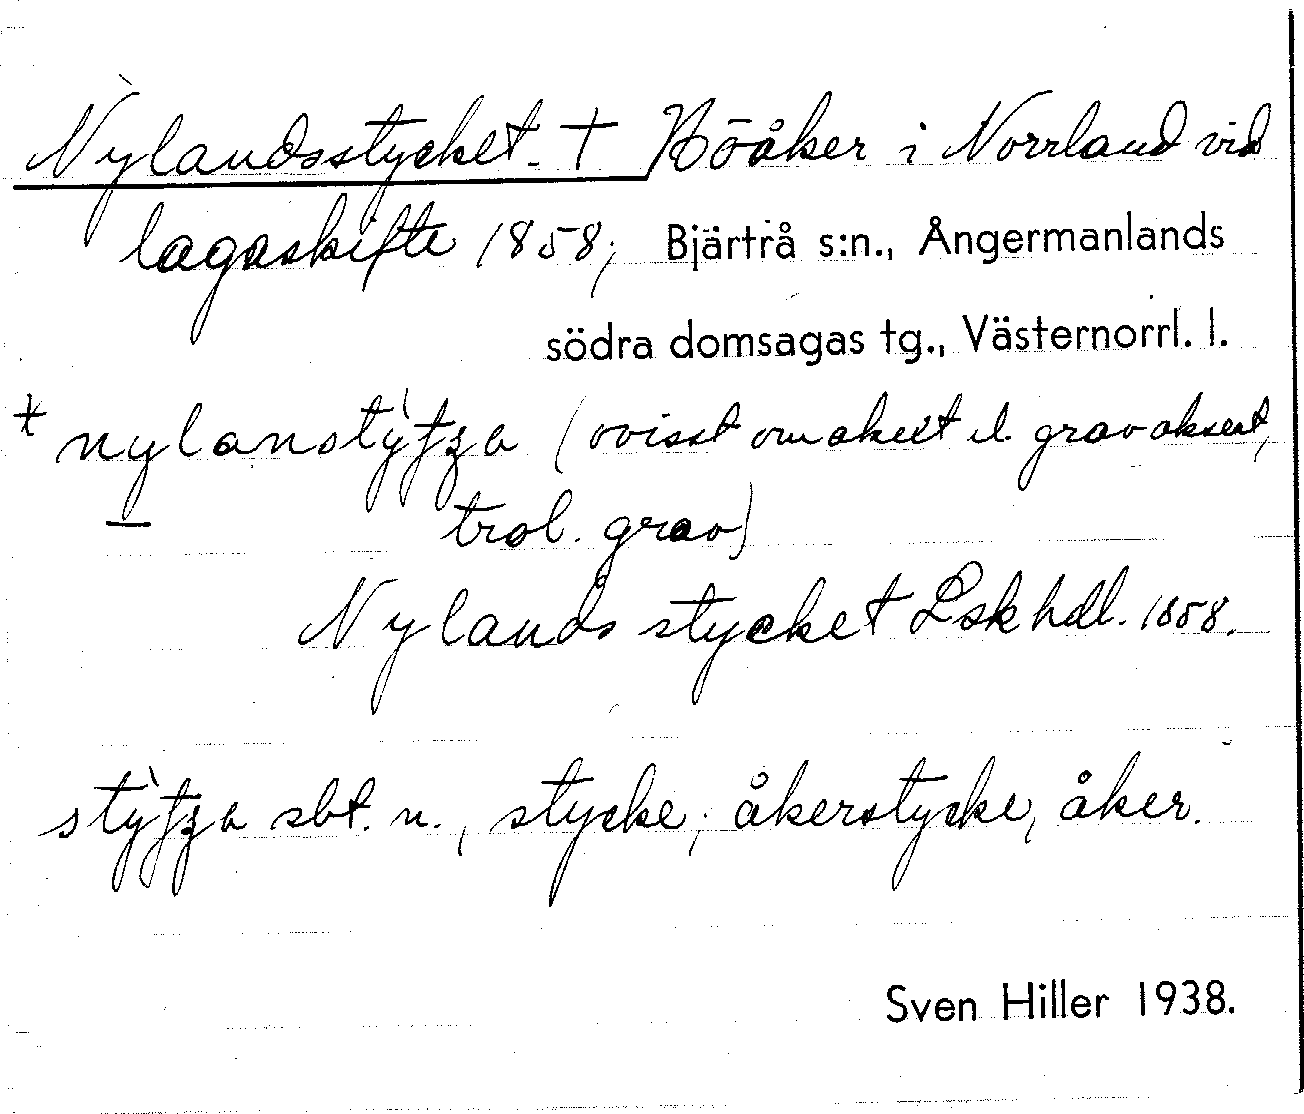 Nylandsstycket. † Höåker i Norrland vid
lagaskifte 1858, Bjärtrå s:n., Ångermanlands
södra domsagas tg., Västernorrl. l.
nylanstỳʈʂa (ovisst om akut el. grav aksent,
trol. grav)
Nylands stycket Lsk hdl. 1858.
stỳʈʂa sbt. n., stycke; åkerstycke, åker.
Sven Hiller 1938.